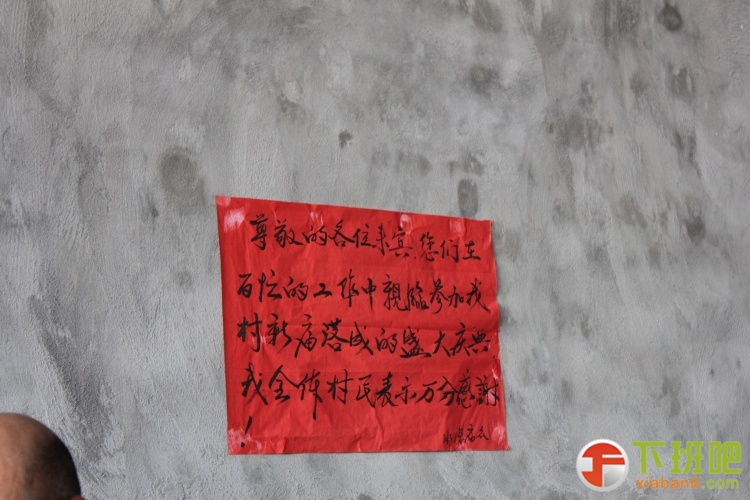 尊敬的各位来宾,您们在
百忙的工作中親临参加我
村新庙落成的盛大庆典,
我全体村民表示万分感謝
!
下班吧
xiaban8.com